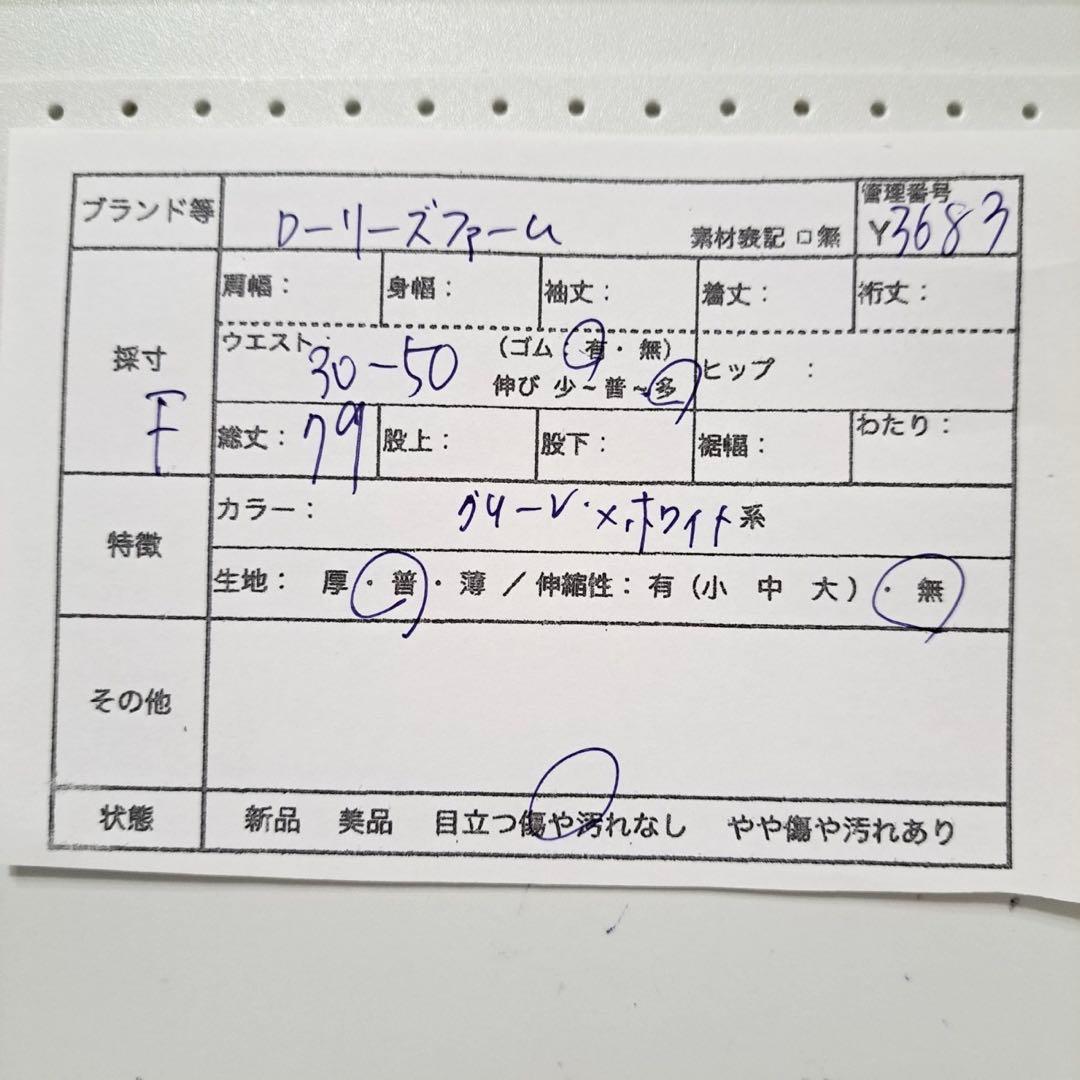 ブランド等 ローリーズファーム 素材表記 □ 無 管理番号 Y3683
採寸 F
肩幅： 身幅： 袖丈： 着丈： 裄丈：
ウエスト： 30-50 (ゴム：有・無)
伸び 少～普～多
ヒップ ：
総丈：79 股上： 股下： 裾幅： わたり：
特徴
カラー： グリーン×ホワイト系
生地： 厚・普・薄 / 伸縮性：有 (小 中 大)・無
その他
状態 新品 美品 目立つ傷や汚れなし やや傷や汚れあり